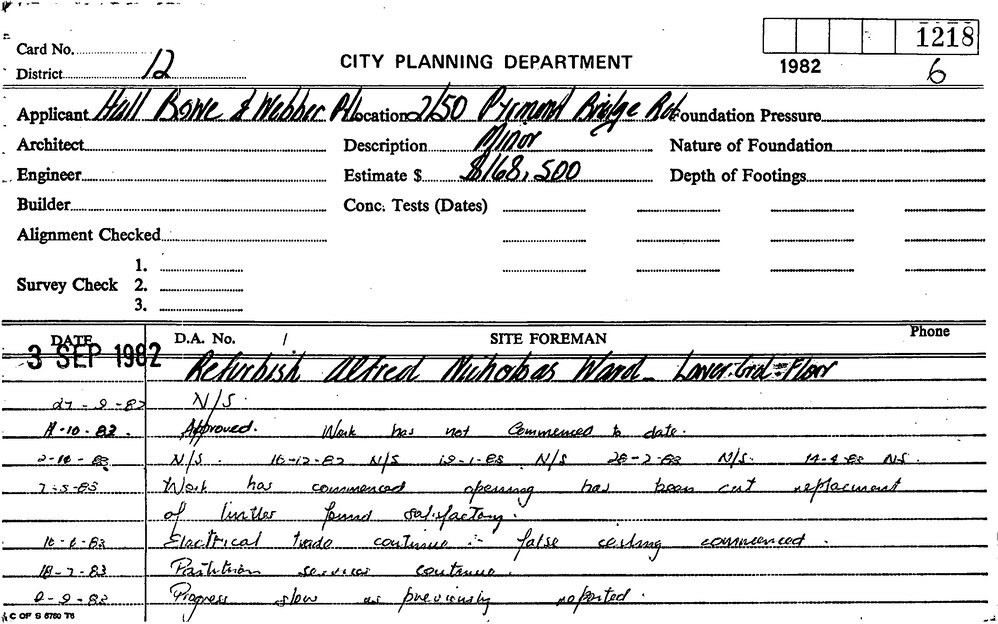 Card No.
1218
District 12
CITY PLANNING DEPARTMENT
1982
6
Applicant Hall Bowe & Webber P/L
Location 2/50 Pyrmont Bridge Rd
Foundation Pressure
Architect
Description Minor
Nature of Foundation
Engineer
Estimate $ $168,500
Depth of Footings
Builder
Conc. Tests (Dates)
Alignment Checked
Survey Check 1.
2.
3.
DATE D.A. No. / SITE FOREMAN Phone
3 SEP 1982 Refurbish Alfred Nicholas Ward Lower Grd Floor
27-9-82 N/S.
11-10-82. Approved. Work has not Commenced to date.
N/S. 16-12-82 N/S 19-1-83 N/S 28-2-83 N/S. 14-4-83 NS.
7-5-83 Work has commenced opening has been cut replacement
of lintler found satisfactory.
16-6-83 Electrical trade continue :- false ceiling commenced.
18-7-83 Partition services continue.
Progress slow as previously reported.
C OF S 6760 T6